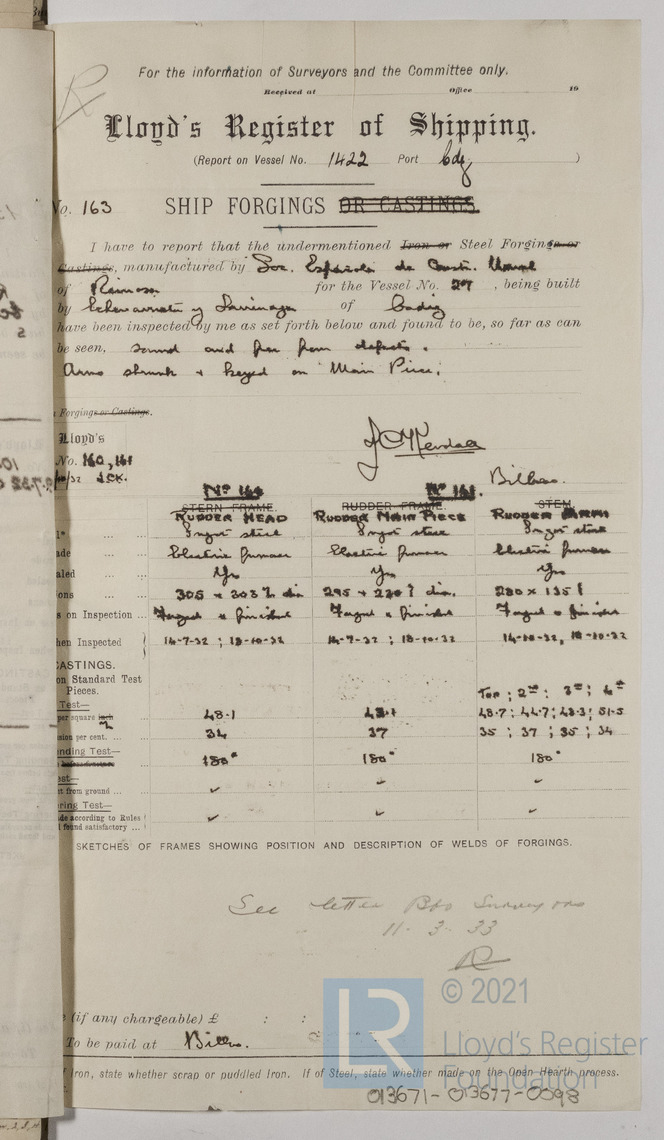 For the information of Surveyors and the Committee only.
Received at Office 19
Lloyd's Register of Shipping.
(Report on Vessel No. 1422 Port Cdz )
No. 163 SHIP FORGINGS OR CASTINGS.
I have to report that the undermentioned Iron or Steel Forgings or
Castings, manufactured by Soc. Española de Const. Naval
of Reinosa for the Vessel No. 27, being built
by Echevarrieta y Larrinaga of Cadiz
have been inspected by me as set forth below and found to be, so far as can
be seen, sound and free from defects.
Arms shrunk & keyed on Main Piece.
Forgings or Castings.
Lloyd's
No. 160, 161
/32 JCK.
J C Kendall
Bilbao.
No 160 No 161.
STERN FRAME. RUDDER FRAME. STEM
RUDDER HEAD RUDDER MAIN PIECE RUDDER ARMS
Ingot steel Ingot steel Ingot steel
ade Electric furnace Electric furnace Electric furnace
aled Yes Yes Yes
ons 305 & 303 dia 295 & 230 dia. 280 x 135
s on Inspection Forged & finished Forged & finished Forged & finished
hen Inspected 14-7-32; 18-10-32 14-7-32; 18-10-32 14-10-32, 18-10-32
CASTINGS.
on Standard Test
Pieces. Top; 2nd; 3rd; 4th
Test—
per square inch 48.1 48.1 48.7; 44.7; 43.3; 51.5
sion per cent. 34 37 35; 37; 35; 34
nding Test—
180° 180° 180°
est—
t from ground
ring Test—
de according to Rules
found satisfactory
SKETCHES OF FRAMES SHOWING POSITION AND DESCRIPTION OF WELDS OF FORGINGS.
See letter Bbo Surveyors
11-3-33
R
(if any chargeable) £ : :
To be paid at Bilbao.
If Iron, state whether scrap or puddled Iron. If of Steel, state whether made on the Open Hearth process.
LR © 2021
Lloyd's Register
Foundation
013671-013677-0098